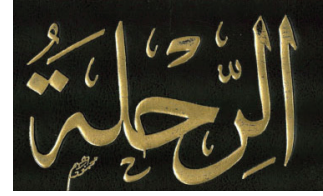 الرِّحلة